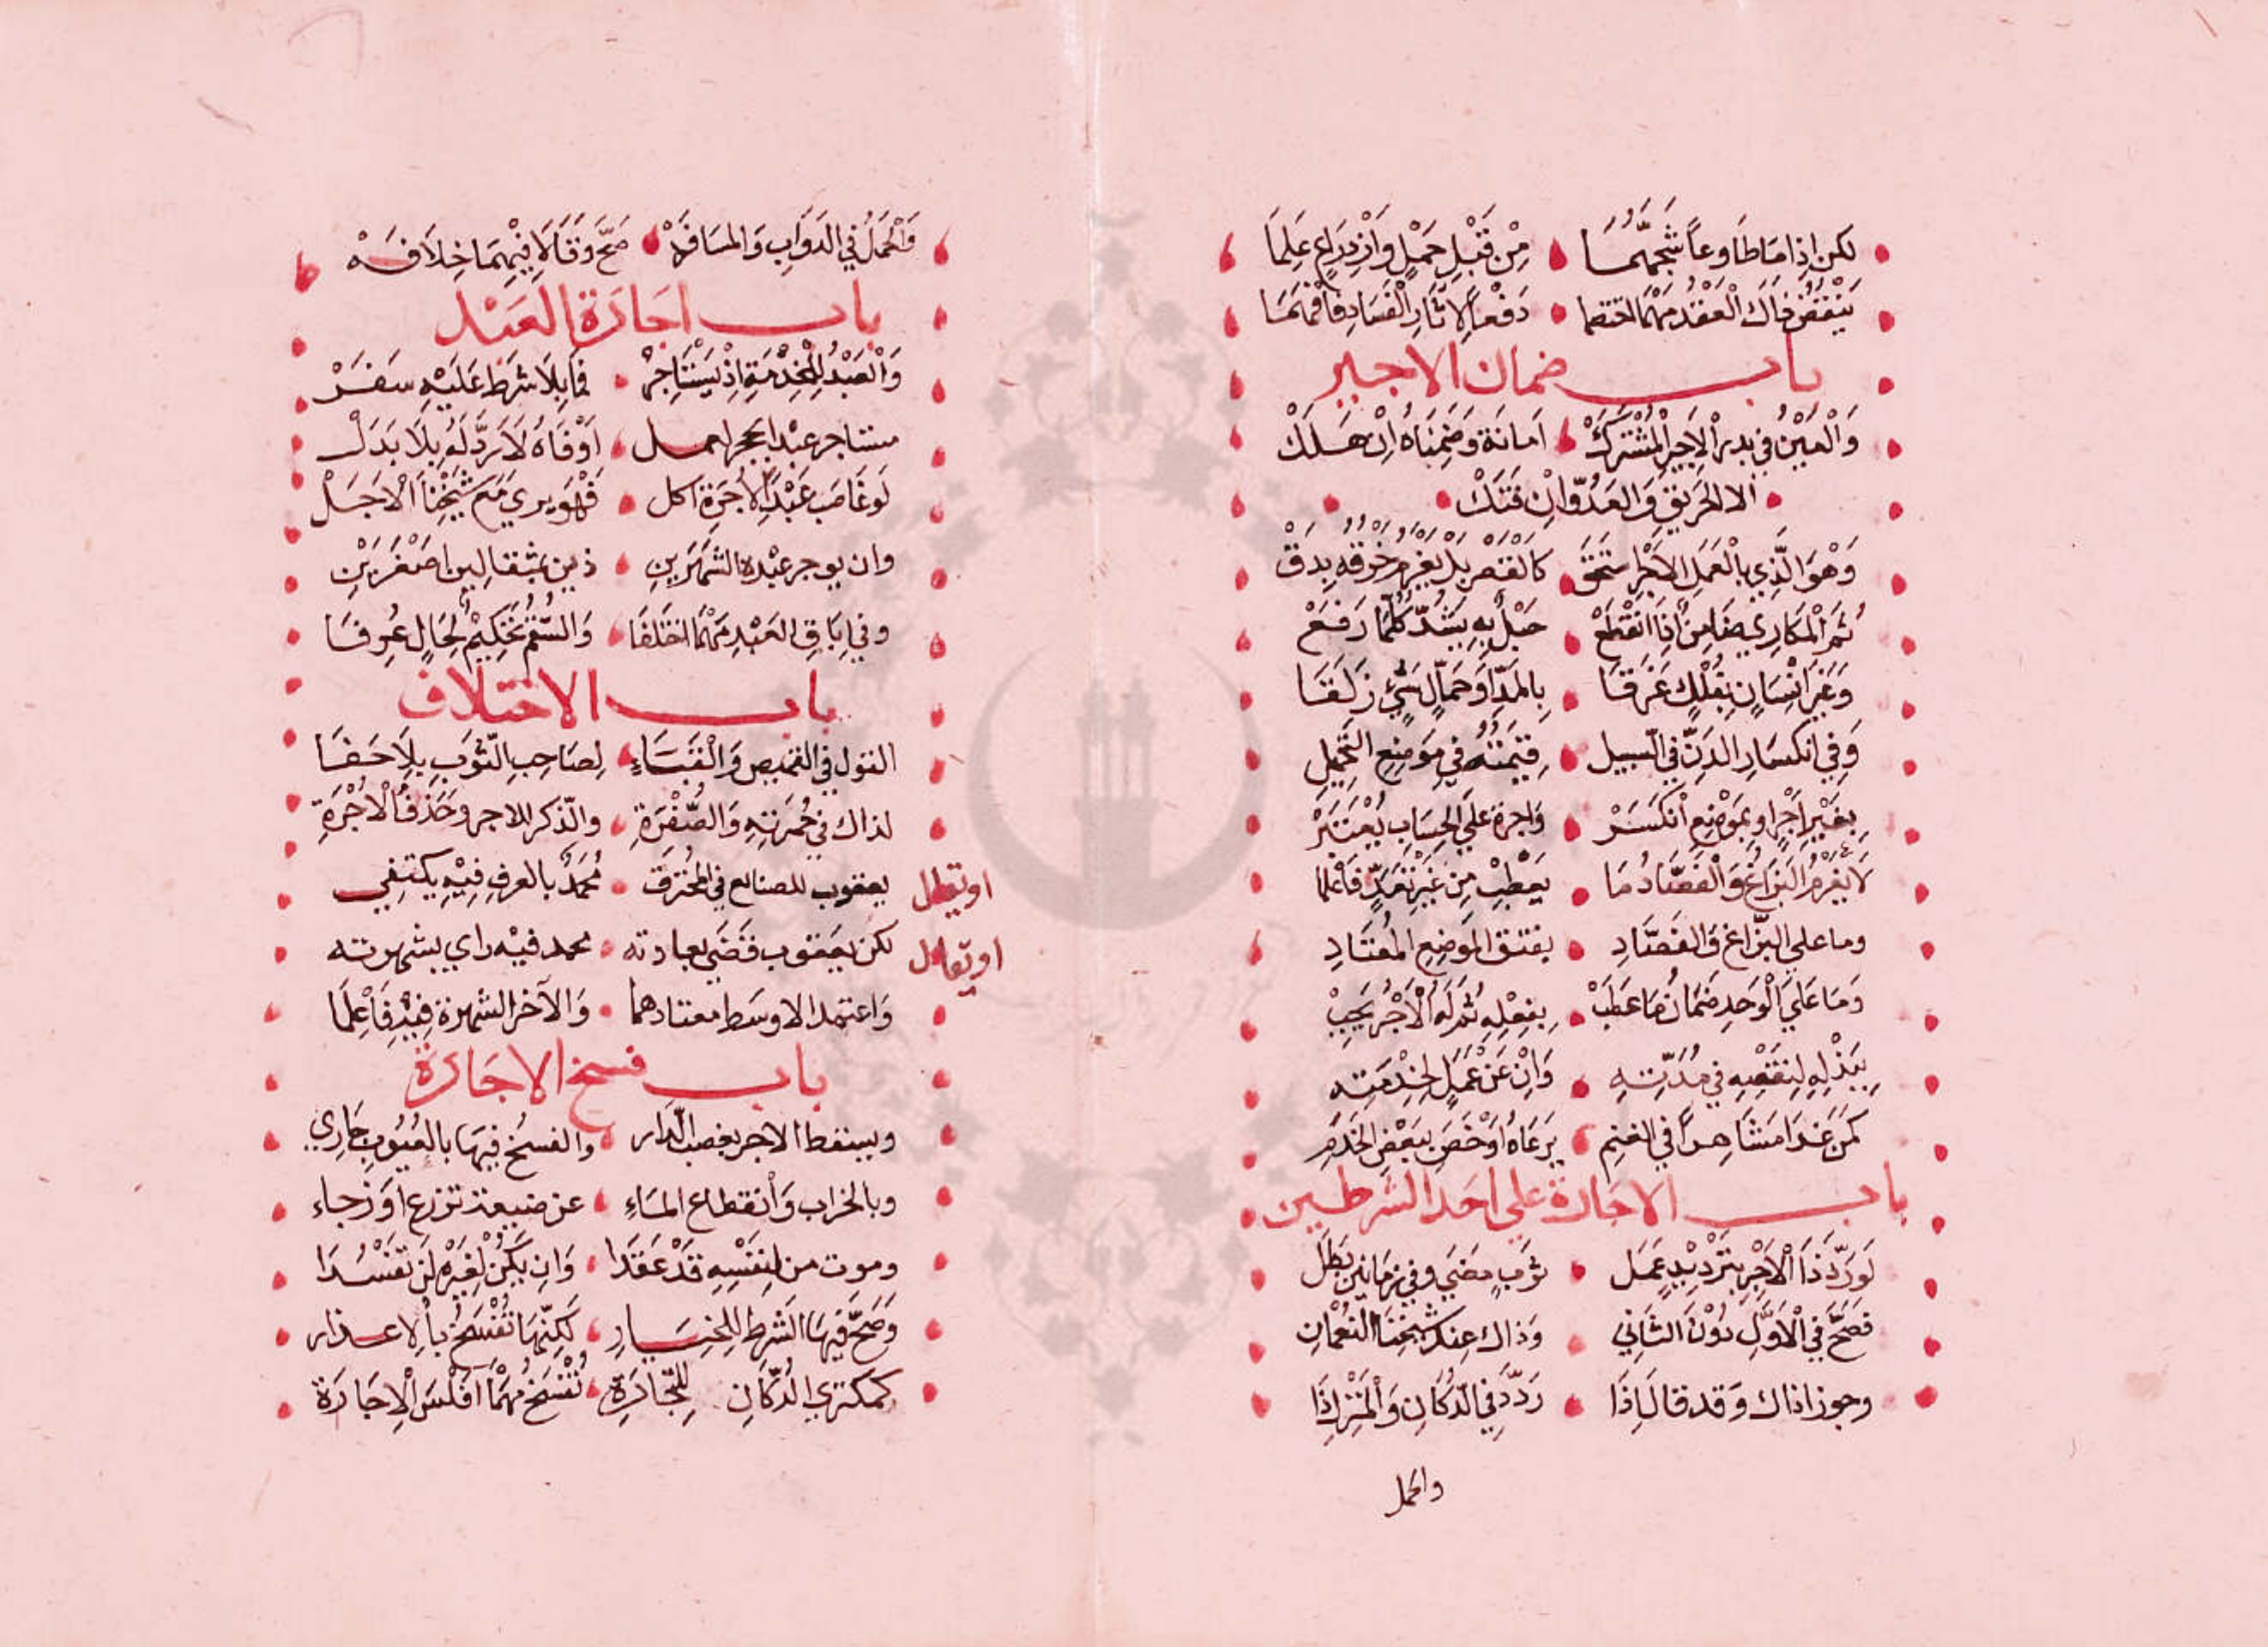 لكن اذا ما طاوعا شجهما من قبل حمل وازدراع علما
ينقض ذاك العقد مهما اختصما دفعا لاثار الفساد فافهما
باب ضمان الاجير
والعين في يد الاجير المشترك امانة وضمناه ان هلك
الا الحريق والعدو ان فتك
وهو الذي بالعمل الاجر استحق كالقصر بل يغرم خرقه بدق
ثم المكاري ضامن اذا انقطع حبل به يشد كلما رفع
وغير انسان بفلك غرقا بالمد او حمال شيء زلقا
وفي انكسار الدن في السبيل قيمته في موضع التحميل
بغير اجر او بموضع انكسر واجرة على الحساب يعتبر
لا يغرم البزاغ والفصاد ما يعطب من غير تعد فاعلما
وما على البزاغ والفصاد بفتق الموضع المعتاد
وما على الوحد ضمان ما عطب بفعله ثم له الاجر يجب
ببذله لنفسه في مدته وان عن عمل لخدمته
كمن غدا مشاهرا في الغنم يرعاه او خص ببعض الخدم
باب الاجارة على احد الشرطين
لو ردد ذا الاجر بترديد عمل ثوب مضى وفي زمانين بطل
فصح في الاول دون الثاني وذاك عند شيخنا النعمان
وجوزا ذاك وقد قالا اذا ردد في الدكان والمنزل ذا
والحمل
والحمل في الدواب والمسافه صح وقالا فيهما خلافه
باب اجارة العبد
والعبد للخدمة اذ يستاجر فما بلا شرط عليه سفر
مستاجر عبدا بحجر لعمل اوفاه لا رد له بلا بدل
لو غاصب عبد الاجرة اكل فهو بري مع شيخنا الاجل
وان يوجر عبده الشهرين ذين بمثقالين اصفرين
وفي اباق العبد مهما اختلفا والسقم تحكيم لحال عرفا
باب الاختلاف
القول في القميص والقباء لصاحب الثوب بلا خفا
لذاك في حمرته والصفرة والذكر للاجر وحذف الاجرة
يعقوب للصانع في المحترف محمد بالعرف فيه يكتفي
لكن يعقوب قضى بعادته محمد فيه راي بشهرته
واعتمد الاوسط معتادهما والآخر الشهرة فيه فاعلما
باب فسخ الاجارة
ويسقط الاجر بغصب الدار والفسخ فيها بالعيوب جاري
وبالخراب وانقطاع الماء عن ضيعة تزرع او رحاء
وموت من لنفسه قد عقدا وان يكن لغيره لن تفسدا
وصح فيها الشرط للخيار لكنها تفسخ بالاعذار
كمكتري الدكان للتجارة تفسخ مهما افلس الاجارة